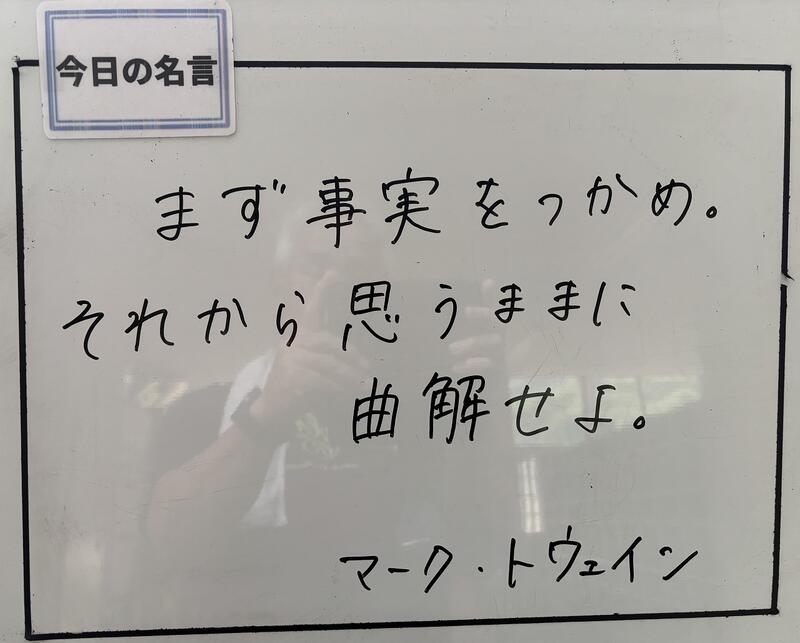 今日の名言
まず事実をつかめ。
それから思うままに
曲解せよ。
マーク・トウェイン